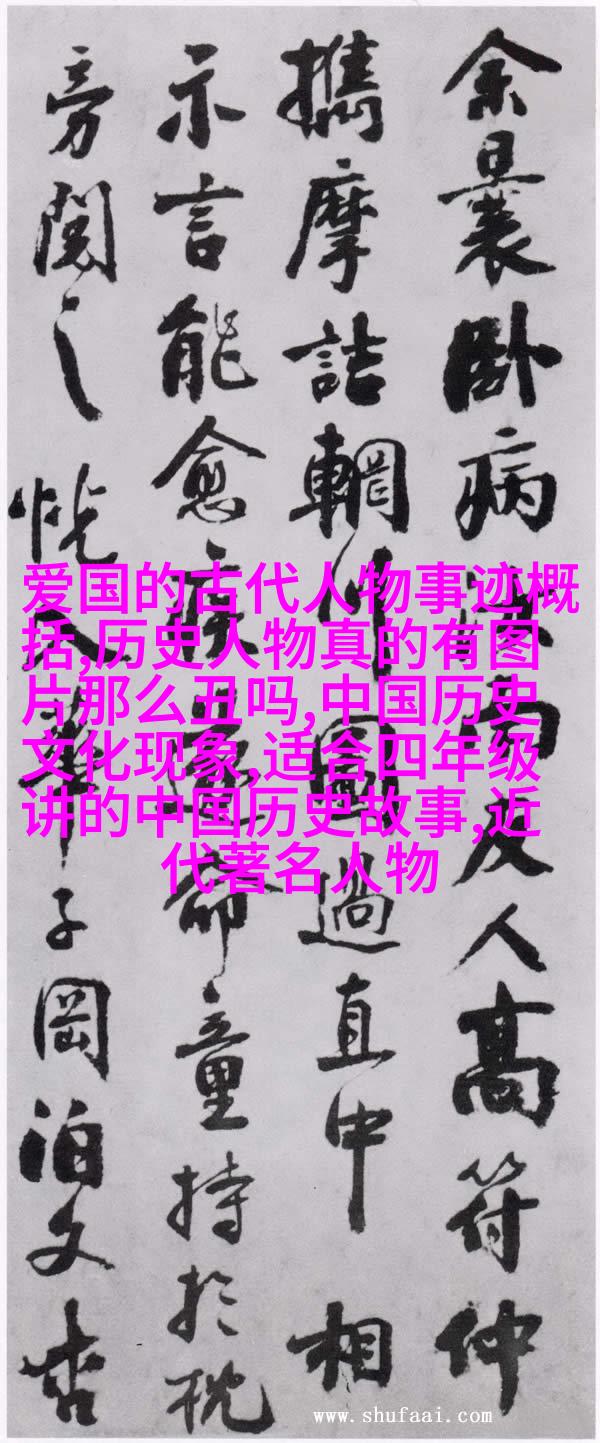 余曩卧病汝南友人高符仲
攜摩詰輞川圖過直中相
示言能愈疾遂命童持於枕
旁閱之恍入華子岡泊文杏
爱国的古代人物事迹概
括,历史人物真的有图
片那么丑吗,中国历史
文化现象,适合四年级
讲的中国历史故事,近
代著名人物
www.shufaai.com